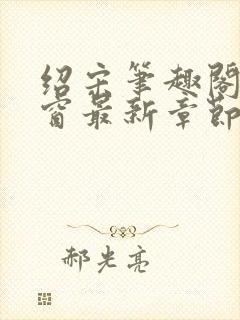 绍宋笔趣阁
窗最新章节
郝光亮